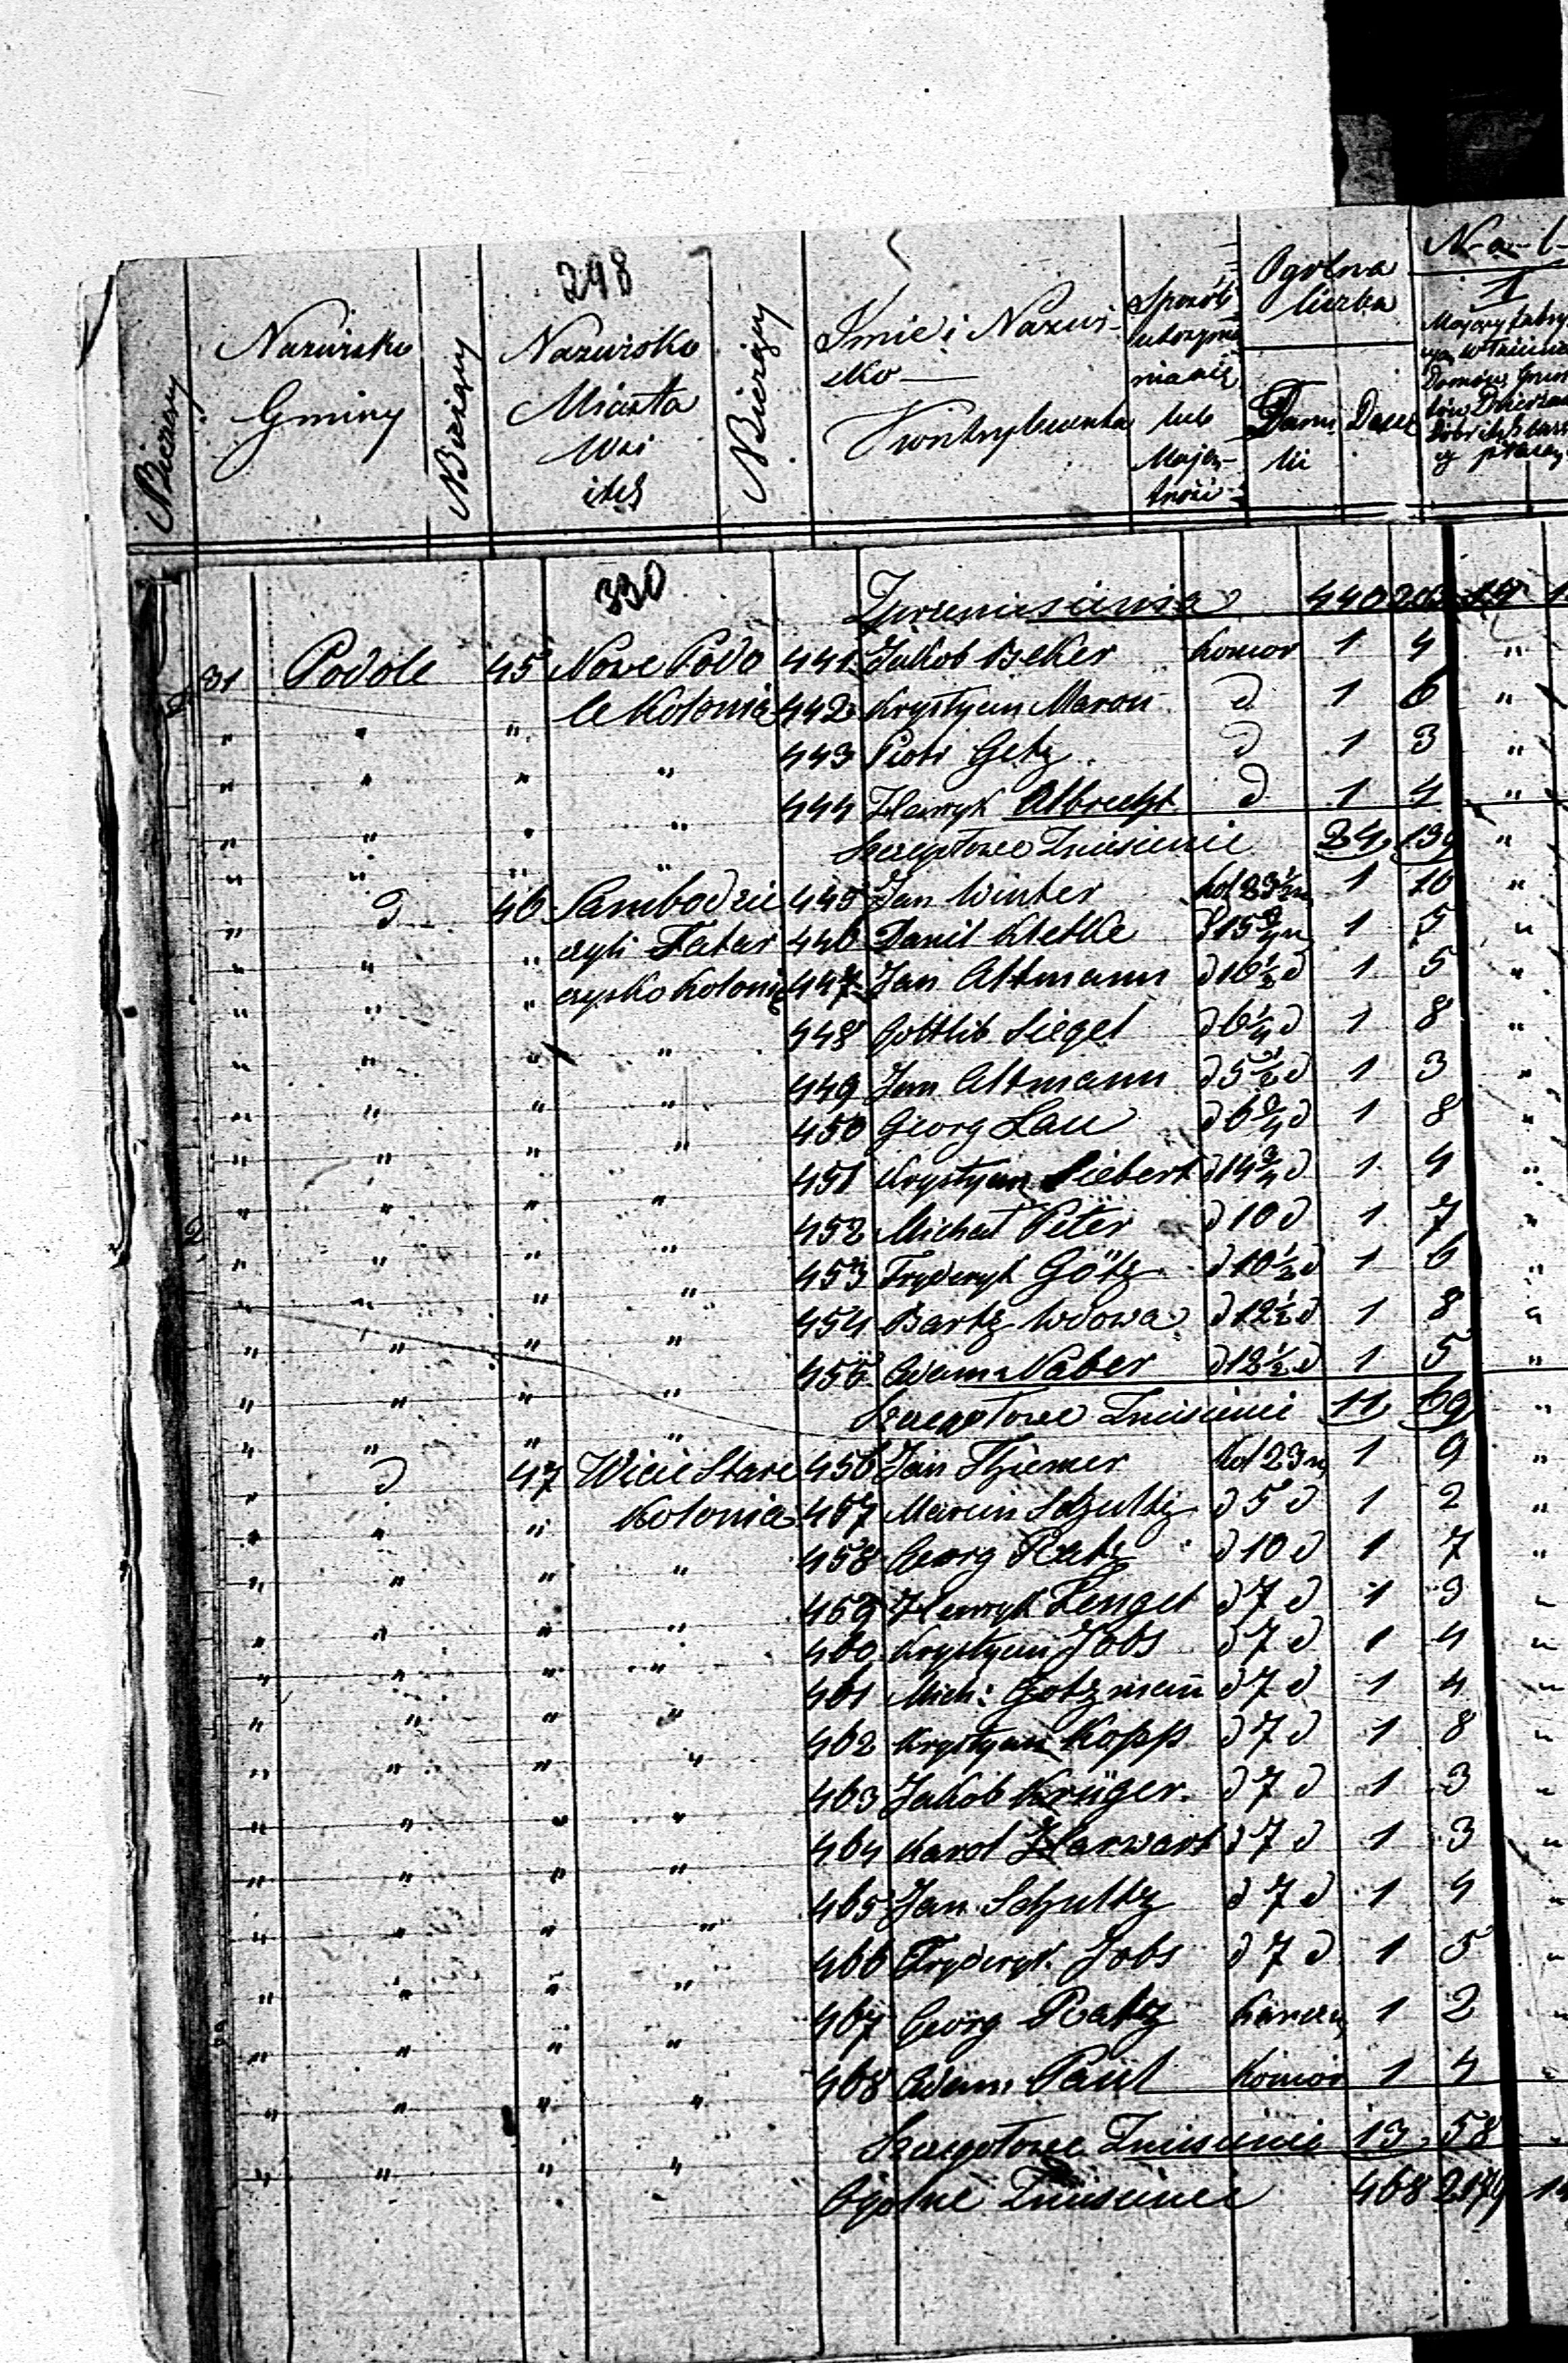 248
Bieżący
Nazwisko Gminy
N Bieżący
Nazwisko Miasta Wsi itd
N Bieżący
Imie i Nazwisko Kontrybuenta
Sposób utrzymania się lub Majętności
Ogólna liczba
Familii Dusz
N-a-l-
1
330
Z przeniesienia 440
31 Podole 45 Nowe Podo 441 Jakób Beker Komor 1 4 "
" " " le Kolonia 442 Krystyan Maron d 1 6 "
" " " " 443 Piotr Getz d 1 3 "
" " " " 444 Henryk Albrecht d 1 4 "
" " " " Szczegołowe Zniesienie 24 139 "
" d 46 Sambodzie 445 Jan Winter kol 23½ m 1 10 "
" " " czyli Tatar 446 Danil Kletke d 15¾ m 1 5 "
" " " czysko Kolonia 447 Jan Altmann d 16½ d 1 5 "
" " " " 448 Gottlib Siegel d 6¼ d 1 8 "
" " " " 449 Jan Altmann d 5½ d 1 3 "
" " " " 450 Georg Lau d 6¾ d 1 8 "
" " " " 451 Krystyan Siebert d 14¾ d 1 4 "
" " " " 452 Michał Peter d 10 d 1 7 "
" " " " 453 Fryderyk Götz d 10½ d 1 6 "
" " " " 454 Bartz Wdowa d 12½ d 1 8 "
" " " " 455 Adam Naber d 12½ d 1 5 "
" " " " Szczegołowe Zniesienie 11 69 "
" d 47 Wicie Stare 456 Jan Thiemer kol 23 m 1 9 "
" " " Kolonia 457 Marcin Schultz d 5 d 1 2 "
" " " " 458 Georg Ratz d 10 d 1 7 "
" " " " 459 Henryk Lengel d 7 d 1 3 "
" " " " 460 Krystyan Jobs d 7 d 1 4 "
" " " " 461 Mich: Gotzmann d 7 d 1 4 "
" " " " 462 Krystyan Kopp d 7 d 1 8 "
" " " " 463 Jakób Krüger d 7 d 1 3 "
" " " " 464 Karol Harwart d 7 d 1 3 "
" " " " 465 Jan Schultz d 7 d 1 4 "
" " " " 466 Fryderyk Jobs d 7 d 1 5 "
" " " " 467 Georg Ratz 1 2 "
" " " " 468 Adam Paul Komor 1 4 "
Szczegołowe Zniesienie 13 58
" " " " Ogólne Zniesienie 468 2179